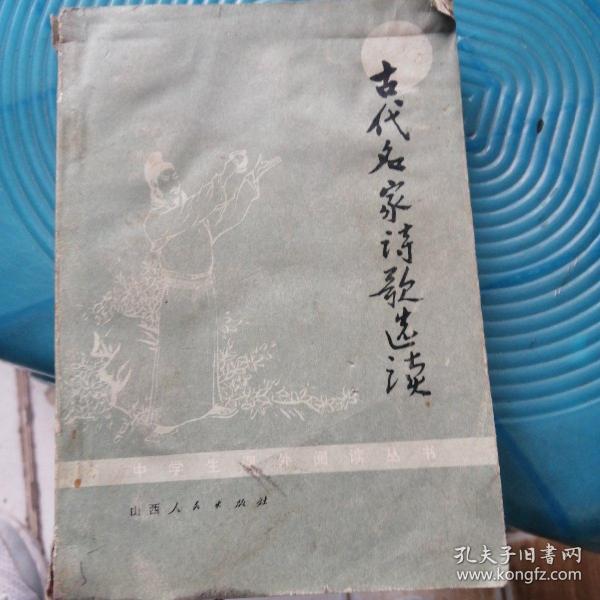 古代名家诗歌选读
中学生课外阅读丛书
山西人民出版社
孔夫子旧书网
www.kongfz.com